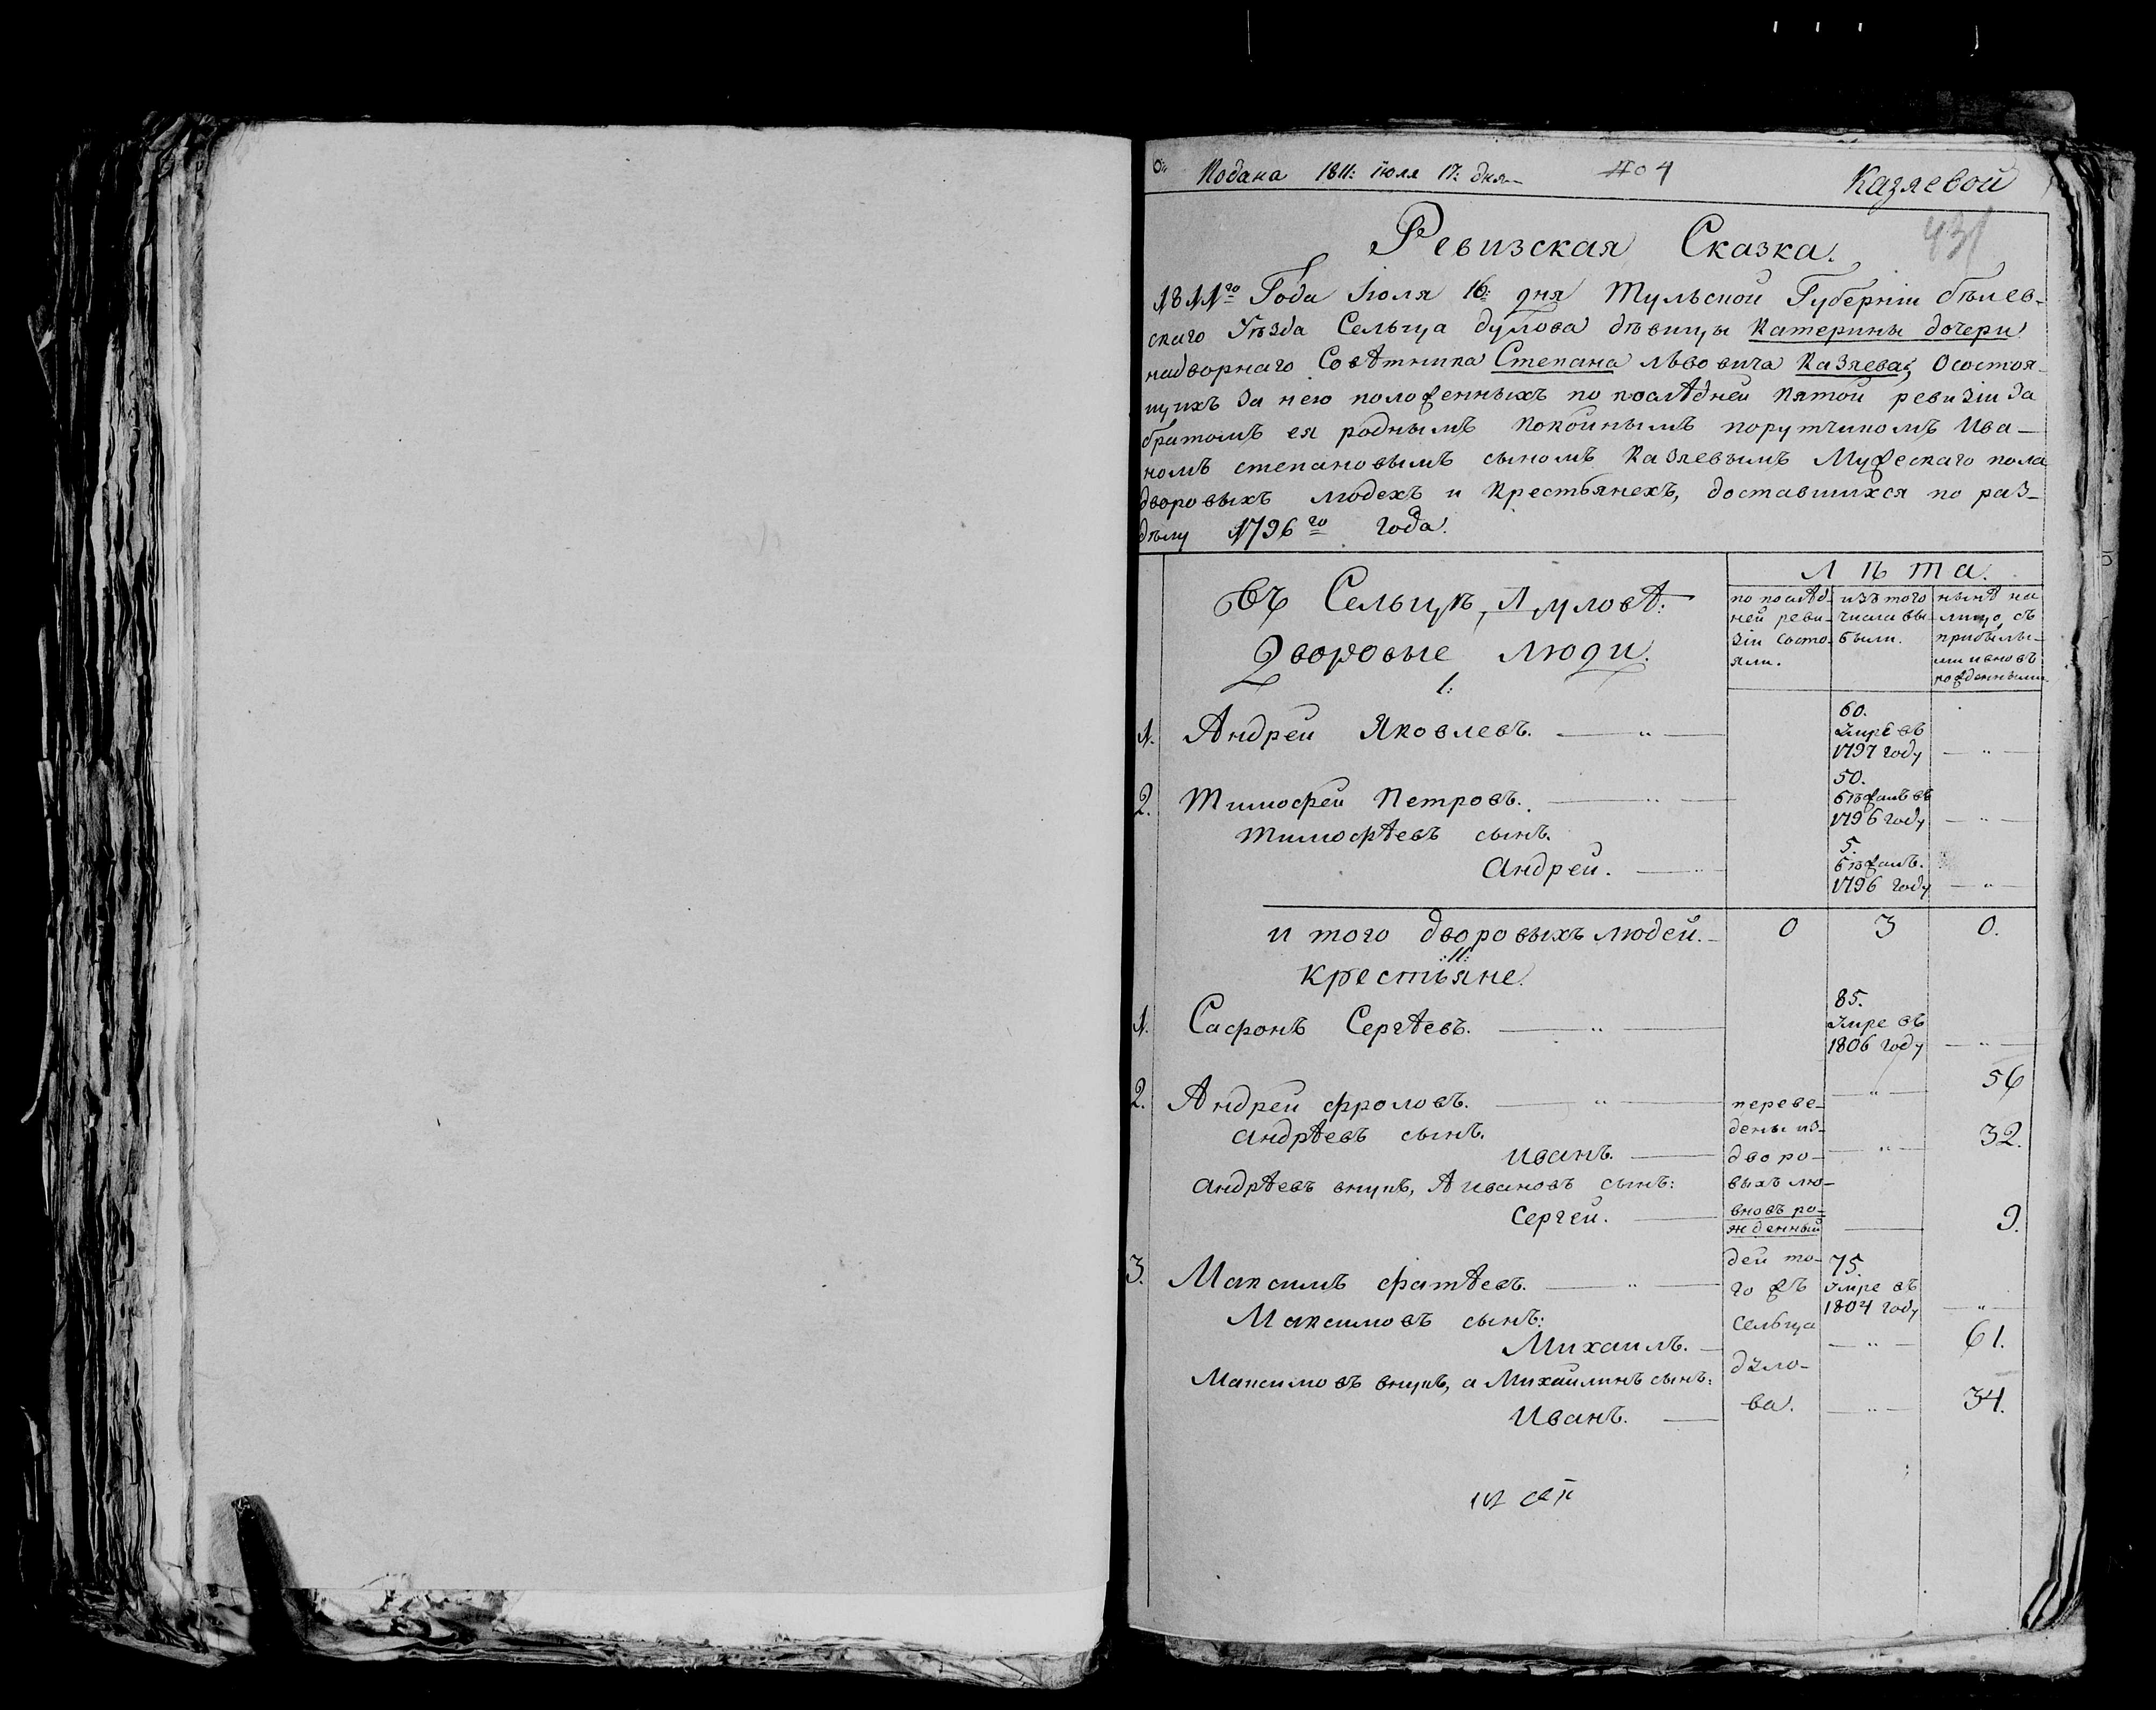 Подана 1811: іюля 17: дня
№ 4
Казяевой
431
Ревизская Сказка.
1811го Года Іюля 16: дня Тульской Губерніи бѣлев-
скаго Уѣзда Сельца дулова дѣвицы Катерины дочери
надворнаго Совѣтника Степана львовича Казяева, О состоя-
щихъ за нею положенныхъ по послѣдней пятой ревизіи за
братомъ ея роднымъ покойнымъ порутчикомъ Ива-
номъ степановымъ сыномъ Казяевымъ Мужескаго пола
дворовыхъ людехъ и Крестьянехъ, доставшихся по раз-
дѣлу 1796го года.
Въ Сельцѣ Дуловѣ:
Дворовые люди.
Лѣта.
по послѣд-
ней реви-
зіи состо-
яли.
изъ того
числа вы-
были.
нынѣ на
лицо, съ
прибылы-
ми и вновь
рожденными.
1:
1. Андрей Яковлевъ.
60.
умре въ
1797 году
2. Тимофей Петровъ.
50.
бѣжалъ въ
1796 году
тимофѣевъ сынъ.
Андрей.
5.
бѣжалъ.
1796 году
и того дворовыхъ людей. 0 3 0.
:11:
крестьяне.
1. Сафонъ Сергѣевъ.
85.
умре въ
1806 году
2. Андрей фроловъ. 56
андрѣевъ сынъ.
иванъ. 32.
андрѣевъ внукъ, А ивановъ сынъ:
Сергей. 9.
переве-
дены из-
дворо-
выхъ лю-
вновь ро-
жденный
дей то-
го жъ
сельца
дуло-
ва.
3. Максимъ фатѣевъ.
75.
умре въ
1804 году
Максимовъ сынъ:
Михаилъ. 61.
Максимовъ внукъ, а Михайлинъ сынъ:
Иванъ. 34.